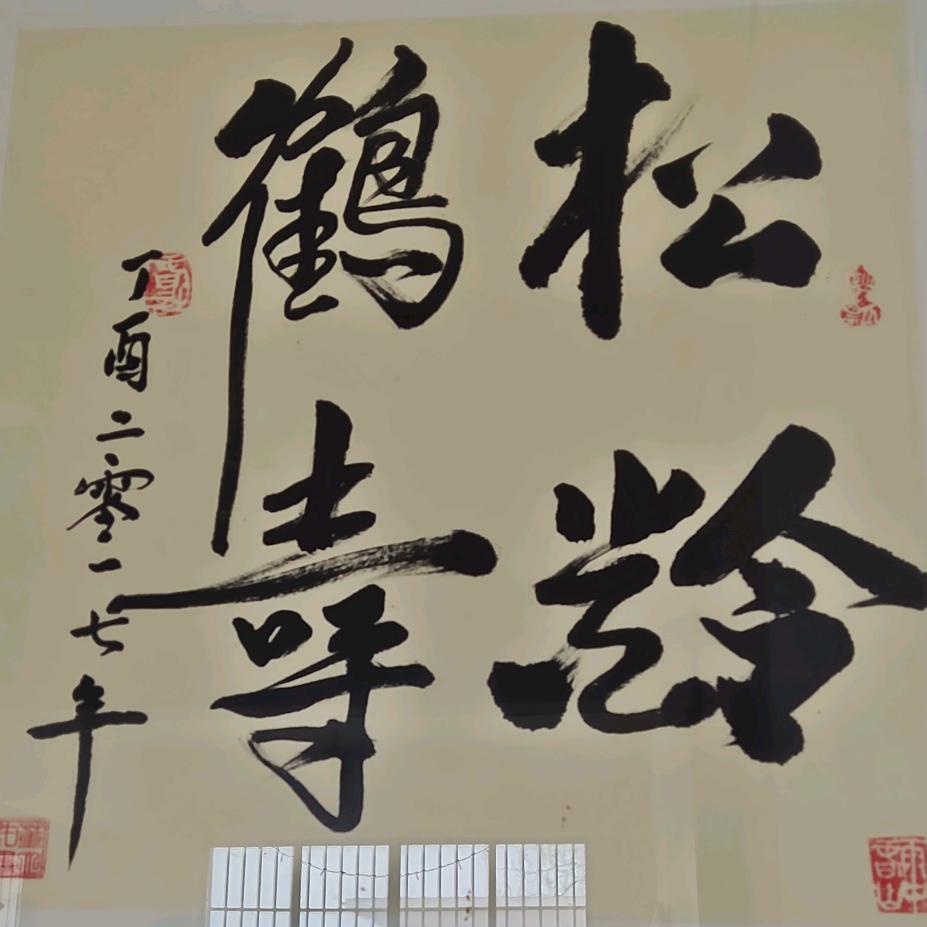 松龄
鹤寿
丁酉二零一七年